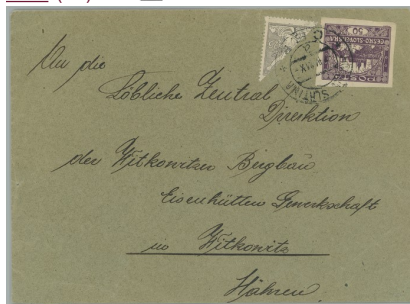 An die
Löbliche Zentral
Direktion
der Witkowitzer Bergbau
Eisenhütten Gewerkschaft
in Witkowitz
Mähren
SLATINA
50